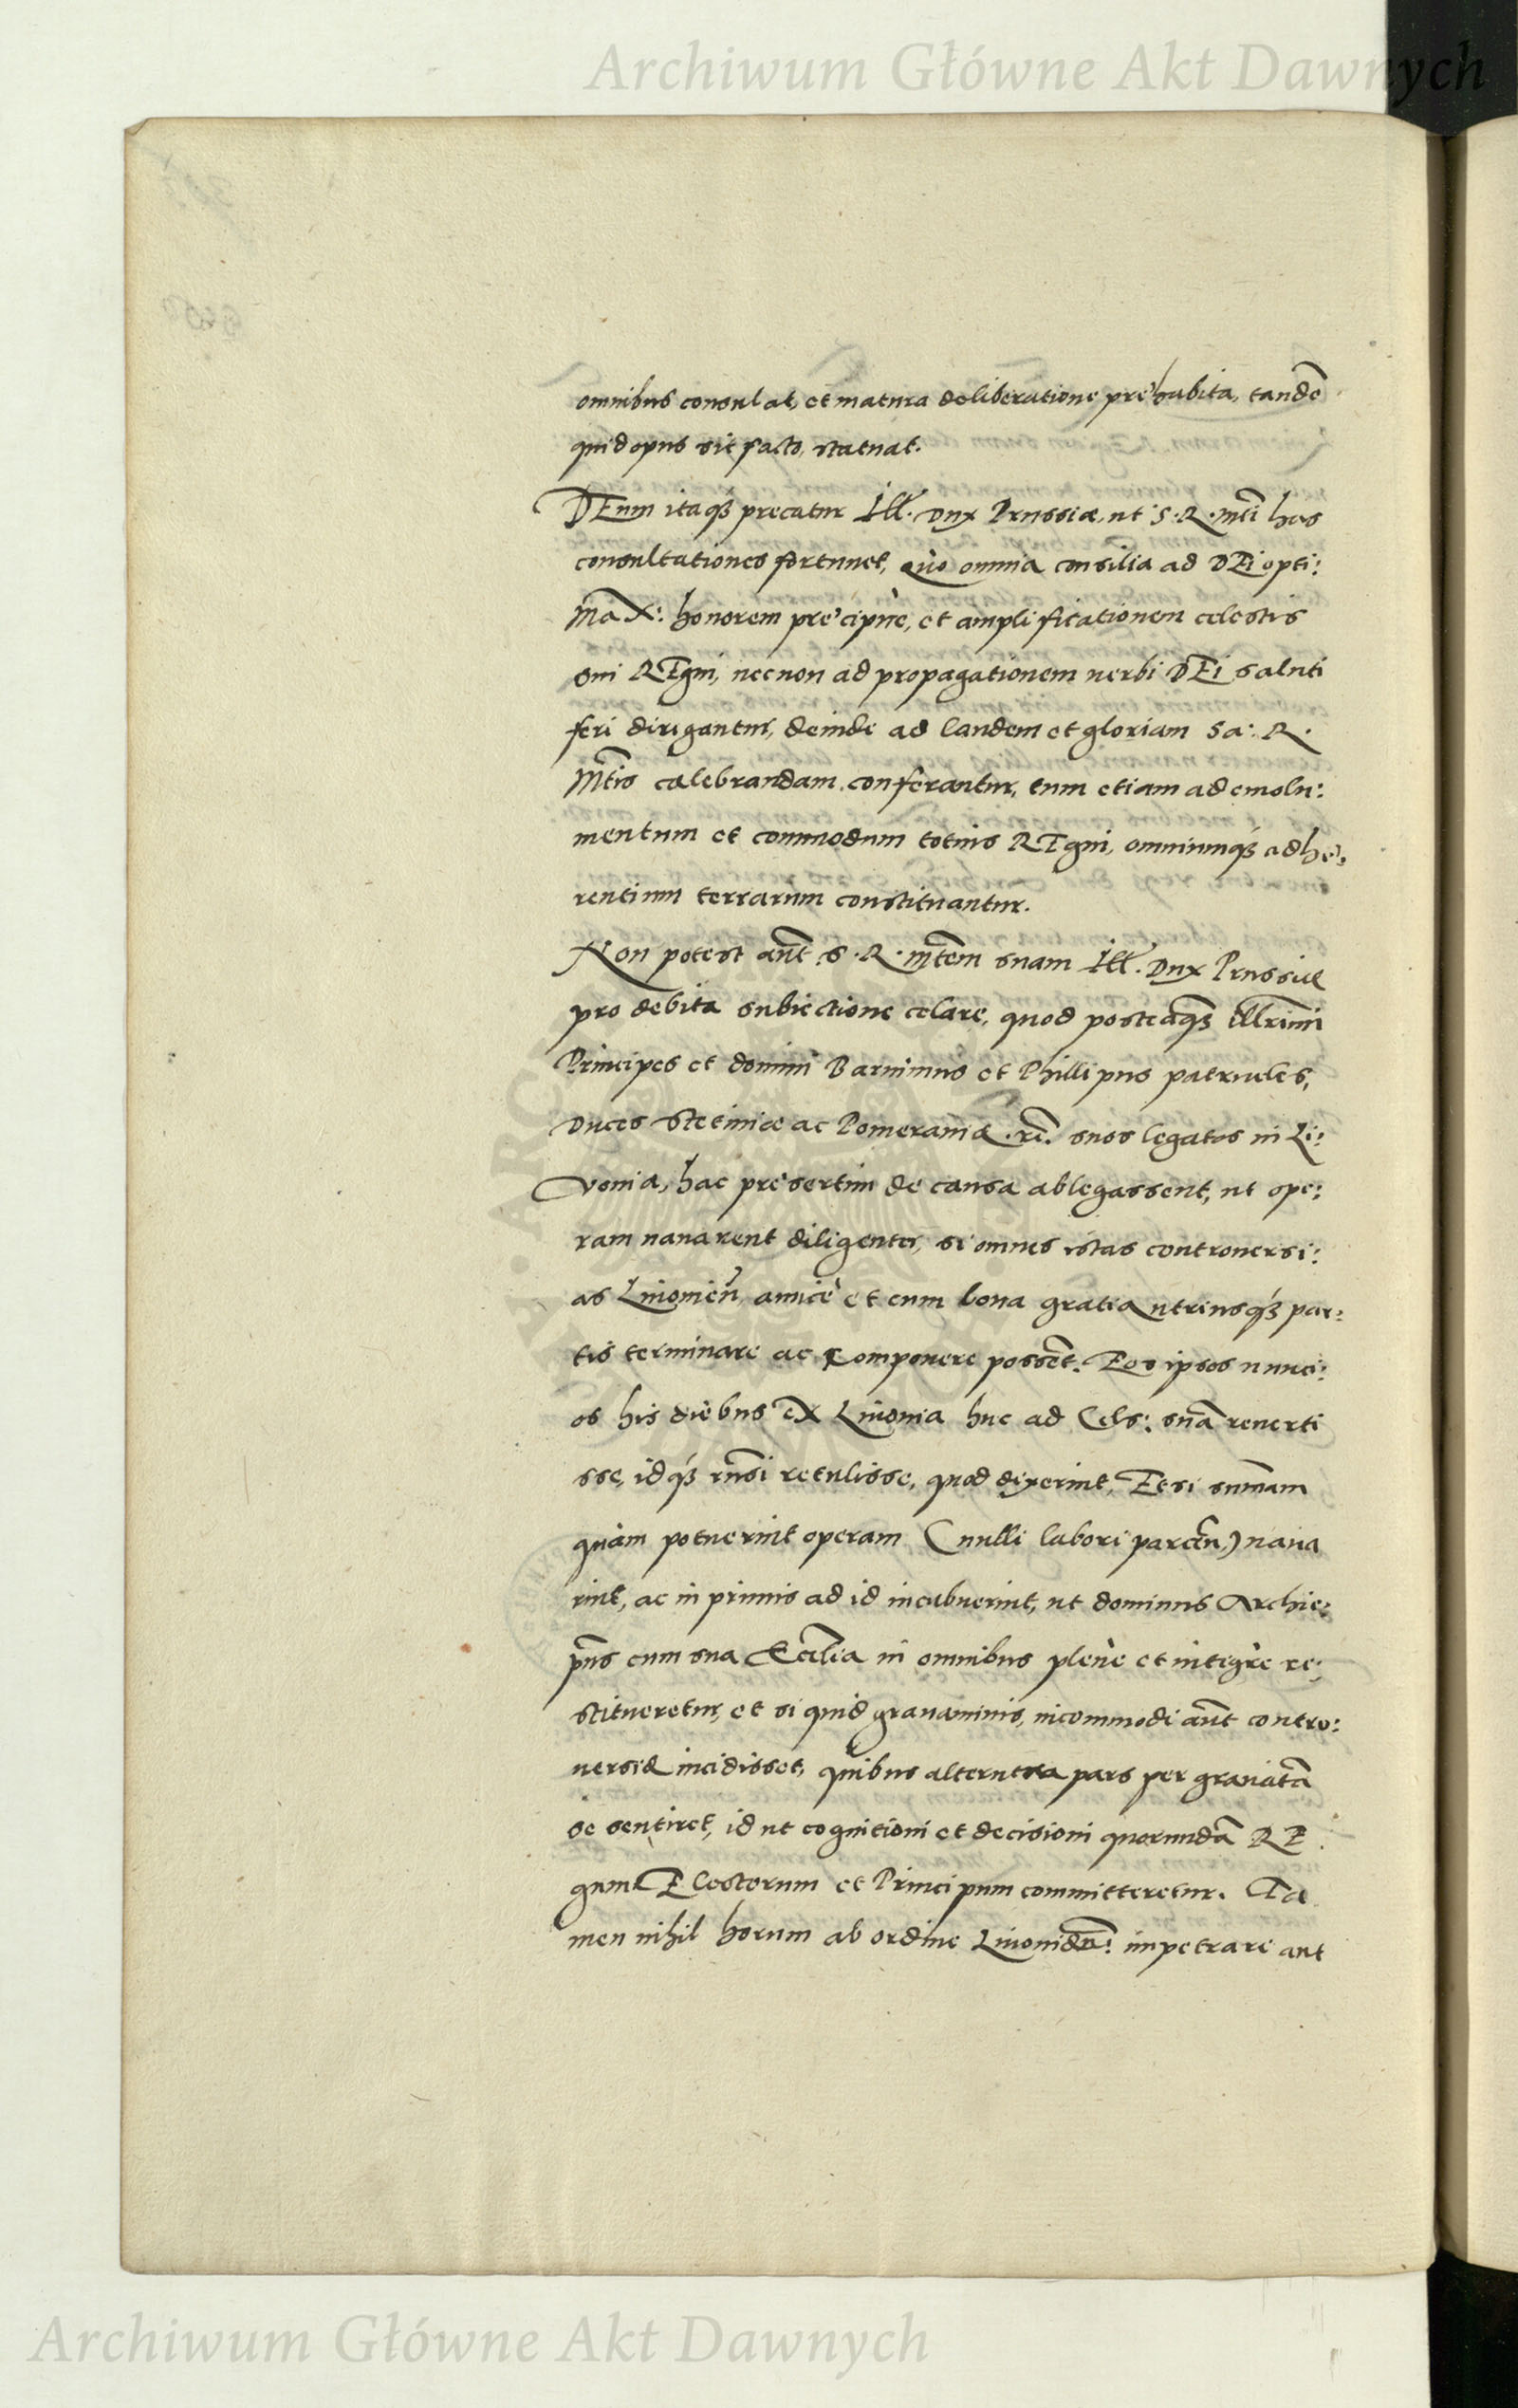 Archiwum Główne Akt Dawnych
omnibus consulat, et matura deliberatione prehabita, tandē
quid opus sit facto, statuat.
DEum itaqꝫ precatur Ill. Dux Prussiæ, ut S. R. Mti has
consultationes fortunet, quo omnia consilia ad DEi opti:
MaX: honorem precipuè, et amplificationem celestis
sui REgni, necnon ad propagationem uerbi DEi saluti
feri dirigantur, deinde ad laudem et gloriam Sa: R.
Mtis celebrandam conferantur, tum etiam ad emolu:
mentum et commodum totius REgni, omniumqꝫ adhe:
rentium terrarum constituantur.
Non potest aūt S. R. Mtem suam Ill. Dux Prussiæ
pro debita subiectione celare, quod posteaqꝫ illrimi
Principes et domini Barnimus et Phillipus patrueles,
Duces Stetiniæ ac Pomeraniæ .rc. suos legatos in Li:
vonia, hac presertim de causa ablegassent, ut ope:
ram nauarent diligenter, si omnes istas controuersi:
as Liuonien̄ amicè et cum bona gratia utriusqꝫ par:
tis terminare ac componere possēt. Eos ipsos nunci:
os his diebus eX Liuonia huc ad Cels: suā reuerti
sse, idqꝫ rūsi retulisse, quod dixerint, Etsi sum̄am
quàm potuerint operam (nulli labori parcen̄) naua
rint, ac in primis ad id incubuerint, ut dominus Archie:
p̄us cum sua Ecclīa in omnibus plenè et integrè re:
stitueretur, et si quid grauaminis, incommodi aūt contro:
uersiæ incidisset, quibus alterutra pars per grauatā
se sentiret, id ut cognitioni et decisioni quorundā RE
gum ELectorum et Principum committeretur. Ta
men nihil horum ab ordine Liuonid̄n: impetrare aut
Archiwum Główne Akt Dawnych